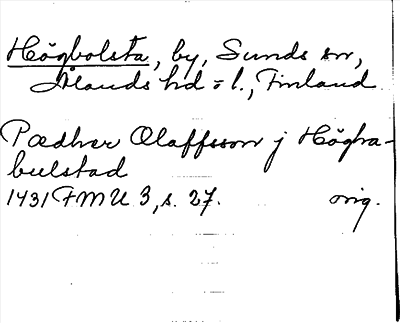 Högbolsta, by, Sunds sn,
Ålands hd o l., Finland
Pædher Olaffsson j Högha-
bulstad
1431 FMU 3, s. 27. orig.